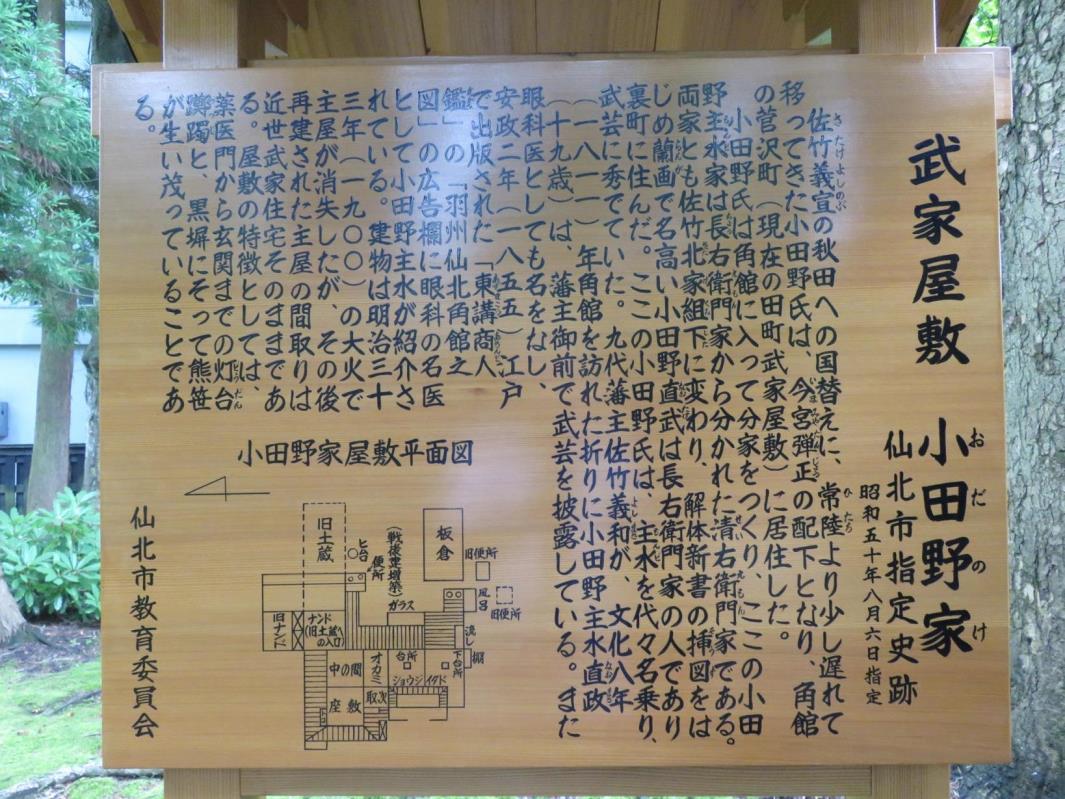 武家屋敷 小田野家
おだのけ
仙北市指定史跡
昭和五十年八月六日指定
佐竹義宣の秋田への国替えに、常陸より少し遅れて
移ってきた小田野氏は、今宮弾正の配下となり、角館
の菅沢町（現在の田町武家屋敷）に居住した。
小田野氏は角館に入って分家をつくり、ここの小田
野主水家は長右衛門家から分かれた清右衛門家である。
両家とも佐竹北家組下に変わり、解体新書の挿図をは
じめ蘭画で名高い小田野直武は長右衛門家の人であり
裏町に住んだ。ここの小田野氏は、主水を代々名乗り、
武芸に秀でていた。九代藩主佐竹義和が、文化八年
（一八一一）年角館を訪れた折りに小田野主水直政
（十九歳）は、藩主御前で武芸を披露している。また
眼科医としても名をなし、
安政二年（一八五五）江戸
で出版された「東講商人
鑑」の「羽州仙北角館之
図」の広告欄に眼科の名医
として小田野主水が紹介さ
れている。建物は明治三十
三年（一九〇〇）の大火で
主屋が消失したが、その後
再建された主屋の間取りは
近世武家住宅そのままであ
る。屋敷の特徴としては、
薬医門から玄関までの灯台
躑躅と、黒塀にそって熊笹
が生い茂っていることであ
る。
小田野家屋敷平面図
旧土蔵
ヒ台
便所
（戦後建増築）
板倉
旧便所
風呂
旧便所
ガラス
流し
棚
旧ナンド
ナンド
（旧土蔵への入口）
中の間
オカミ
台所
下台所
ショウジ
イタド
座敷
取次
トコ
仙北市教育委員会